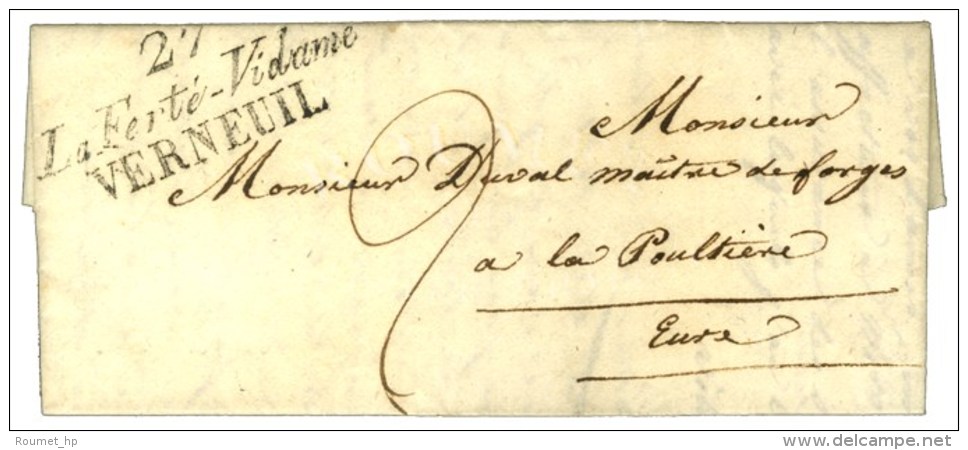 27
La Ferté-Vidame
VERNEUIL
Monsieur
Monsieur Duval maître de forges
a la Poultière
Eure
Roumet_hp
delcampe.net